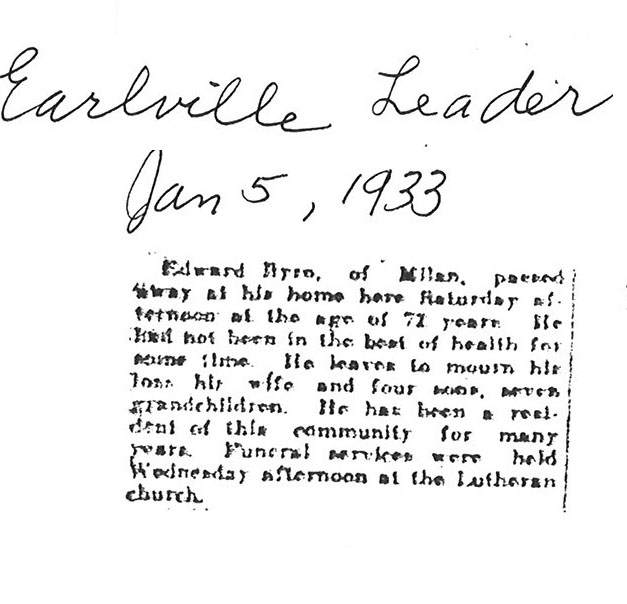 Earlville Leader
Jan 5, 1933
Edward of Milan, passed
away at his home here Saturday af-
ternoon at the age of years. He
had not been in the best of health for
some time. He leaves to mourn his
loss his wife and four sons, seven
grandchildren. He has been a resi-
dent of this community for many
years. Funeral services were held
Wednesday afternoon at the Lutheran
church.